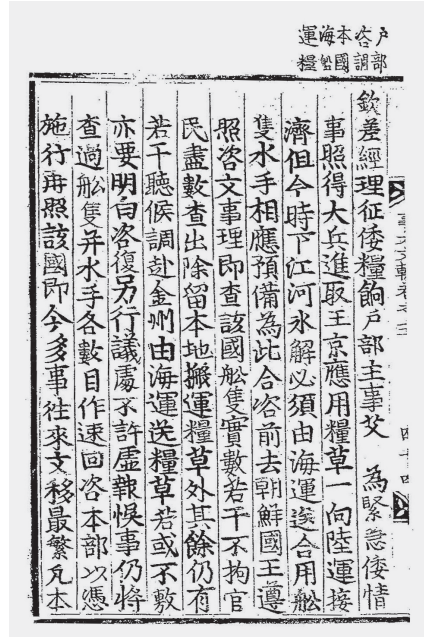 户部
咨調
本國
海舩
運糧
欽差經理征倭糧餉户部主事艾　為緊急倭情
事照得大兵進取王京應用糧草一向陸運接
濟但今時下江河水解必須由海運送合用舩
隻水手相應預備為此合咨前去朝鮮國王遵
照咨文事理即查該國舩隻實數若干不拘官
民盡數查出除留本地搬運糧草外其餘仍有
若干聽候調赴金州由海運送糧草若或不敷
亦要明白咨復另行議處不許虛報悞事仍將
查過舩隻并水手各數目作速回咨本部以憑
施行再照該國即今多事往來文移最繁凡本
四十四